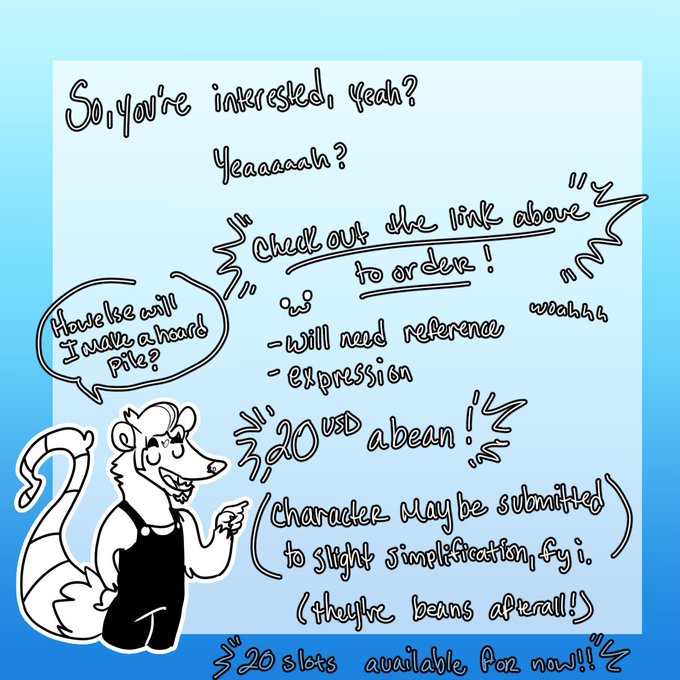 So, you're interested, yeah?
Yeaaaaah?
Check out the link above
to order!
woahhh
How else will
I make a hoard
pile?
- will need reference
- expression
20 USD a bean!
(Character may be submitted
to slight simplification, fyi.)
(they're beans afterall!)
20 slots available for now!!